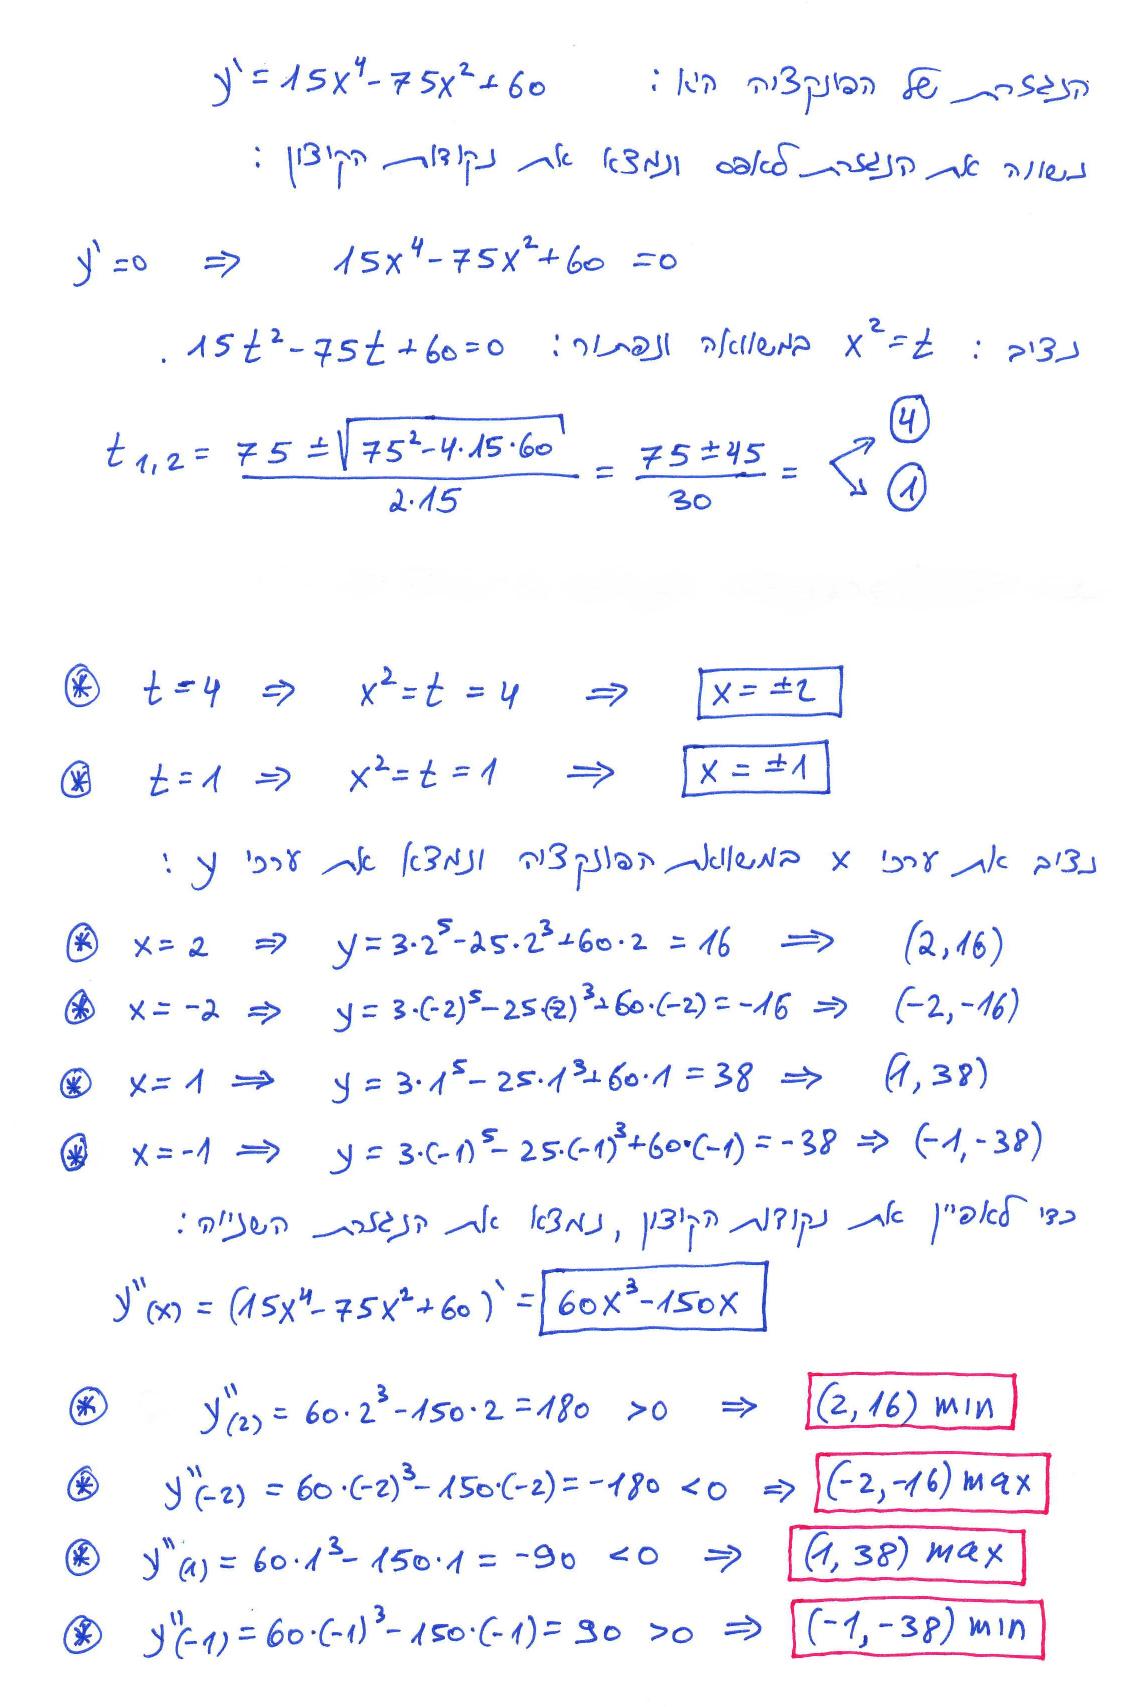 הנגזרת של הפונקציה היא: y` = 15x⁴ - 75x² + 60
נשווה את הנגזרת לאפס ונמצא את נקודות הקיצון:
y` = 0 ⇒ 15x⁴ - 75x² + 60 = 0
נציב: x² = t במשוואה ונפתור: 15t² - 75t + 60 = 0.
t₁,₂ = (75 ± √(75² - 4·15·60)) / (2·15) = (75 ± 45) / 30 = 4, 1
* t = 4 ⇒ x² = t = 4 ⇒ x = ±2
* t = 1 ⇒ x² = t = 1 ⇒ x = ±1
נציב את ערכי x במשוואת הפונקציה ונמצא את ערכי y:
* x = 2 ⇒ y = 3·2⁵ - 25·2³ + 60·2 = 16 ⇒ (2,16)
* x = -2 ⇒ y = 3·(-2)⁵ - 25·(-2)³ + 60·(-2) = -16 ⇒ (-2,-16)
* x = 1 ⇒ y = 3·1⁵ - 25·1³ + 60·1 = 38 ⇒ (1,38)
* x = -1 ⇒ y = 3·(-1)⁵ - 25·(-1)³ + 60·(-1) = -38 ⇒ (-1,-38)
כדי לאפיין את נקודות הקיצון, נמצא את הנגזרת השנייה:
y"(x) = (15x⁴ - 75x² + 60)` = 60x³ - 150x
* y"(2) = 60·2³ - 150·2 = 180 > 0 ⇒ (2,16) min
* y"(-2) = 60·(-2)³ - 150·(-2) = -180 < 0 ⇒ (-2,-16) max
* y"(1) = 60·1³ - 150·1 = -90 < 0 ⇒ (1,38) max
* y"(-1) = 60·(-1)³ - 150·(-1) = 90 > 0 ⇒ (-1,-38) min